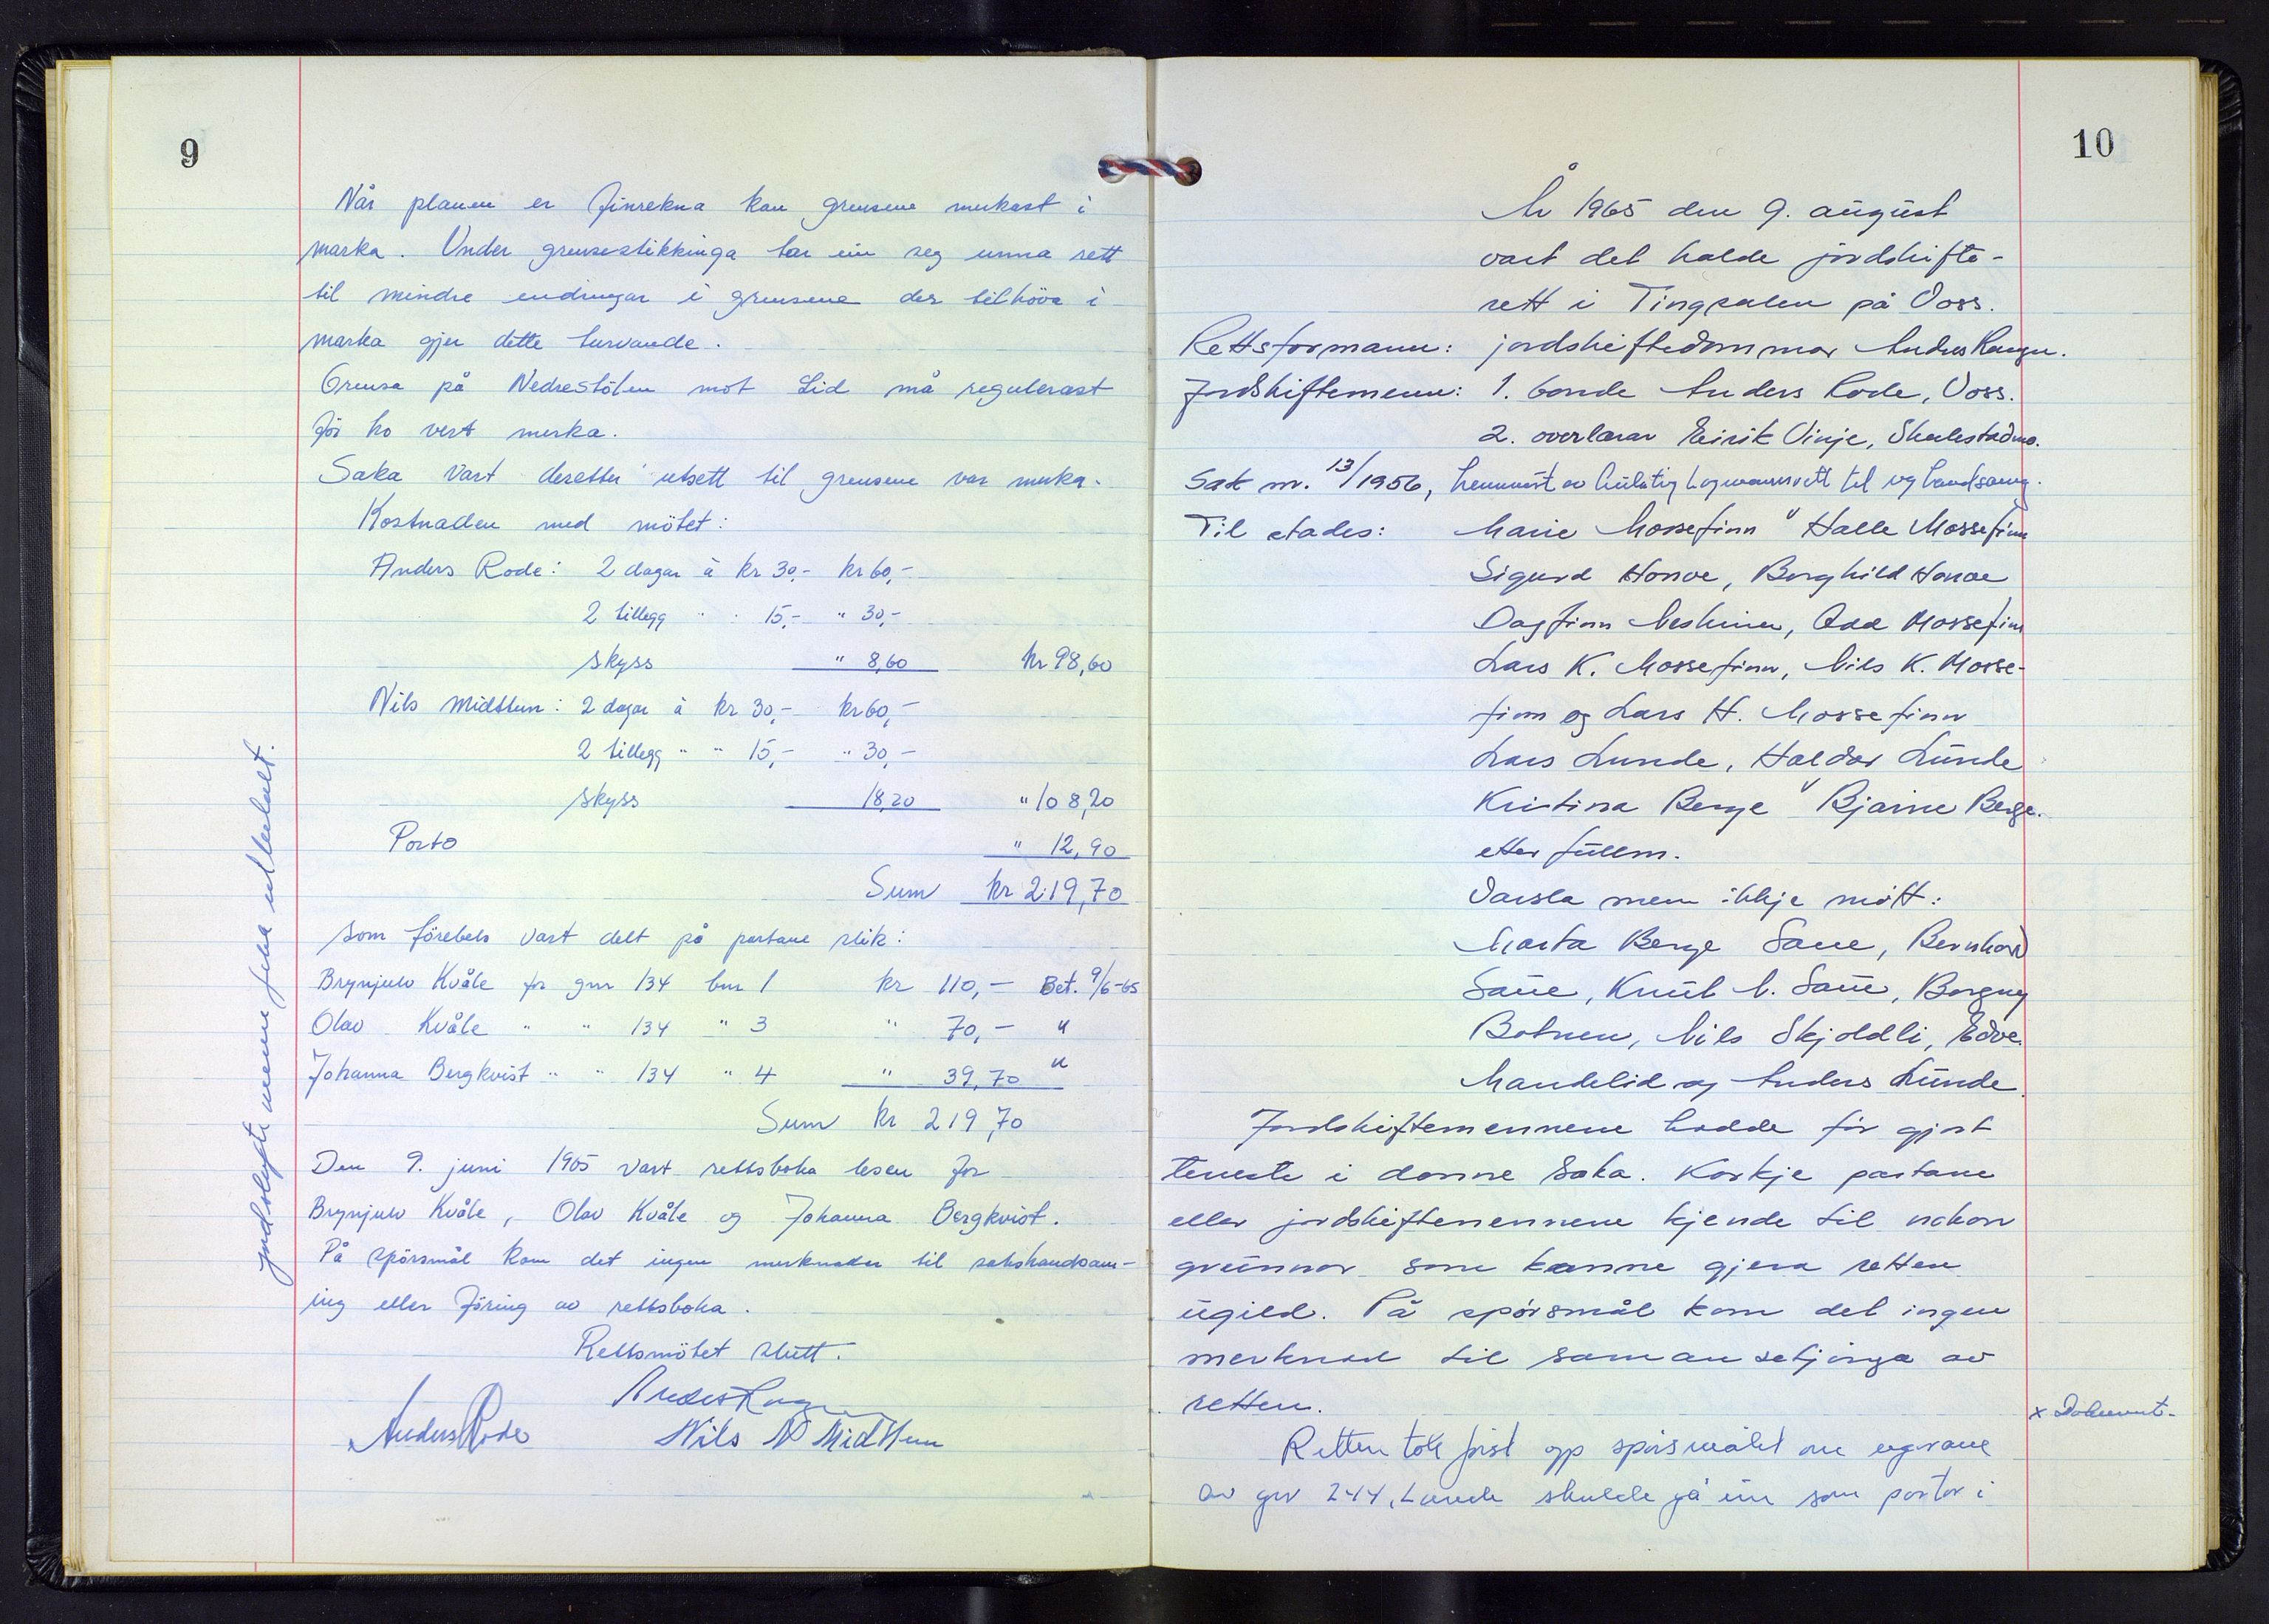 9
Når planen er finrekna kan grensene merkast i
marka. Under grensestikkinga tar ein seg unna rett
til mindre endringar i grensene der tilhöva i
marka gjer dette turvande.
Grensa på Nedrestölen mot Lid må regulerast
för ho vert merka.
Saka vart deretter utsett til grensene var merka.
Kostnaden med mötet:
Anders Rode: 2 dagar à kr 30,- kr 60,-
2 tillegg " " 15,- " 30,-
skyss " 8,60 kr 98,60
Nils Midttun: 2 dagar à kr 30,- kr 60,-
2 tillegg " " 15,- " 30,-
skyss 18,20 " 108,20
Porto " 12,90
Sum kr 219,70
som förebels vart delt på partane slik:
Brynjulv Kvåle for gnr 134 bnr 1 kr 110,- Bet. 9/6-65
Olav Kvåle " " 134 " 3 " 70,- "
Johanna Bergkvist " " 134 " 4 " 39,70 "
Sum kr 219,70
Den 9. juni 1965 vart rettsboka lesen for
Brynjulv Kvåle, Olav Kvåle og Johanna Bergkvist.
På spörsmål kom det ingen merknader til sakshandsam-
ing eller föring av rettsboka.
Rettsmötet slutt.
Anders
Anders Rode Nils N Midttun
10
År 1965 den 9. august
vart det halde jordskifte-
rett i Tingsalen på Voss.
Rettsformann: jordskiftedommar Anders Haugen.
Jordskiftemenn: 1. bonde Anders Rode, Voss.
2. overlærar Eirik Vinje, Skulestadmo.
Sak nr. 13/1956, av Gulating Lagmannsrett til ny handsaming.
Til stades: Marie Mossefinn v/ Halle Mossefinn
Sigurd Honve, Borghild Honve
Dagfinn Neskinen, Odd Mossefinn
Lars K. Mossefinn, Nils K. Mosse-
finn og Lars H. Mossefinn
Lars Lunde, Haldor Lunde
Kristina Berge v/ Bjarne Berge.
etter fullm.
Varsla men ikkje mött:
Marta Berge Saue, Bernhard
Saue, Knut N. Saue, Borgny
Botnen, Nils Skjoldli, Edv.
Mandelid og Anders Lunde.
Jordskiftemennene hadde för gjort
teneste i denne saka. Korkje partane
eller jordskiftemennene kjende til nokon
grunnar som kunne gjera retten
ugild. På spörsmål kom det ingen
merknad til samansetjinga av
retten.
x Dokument.
Retten tok först opp spörsmålet om eigarane
av gnr 244, Lunde skulde gå inn som partar i